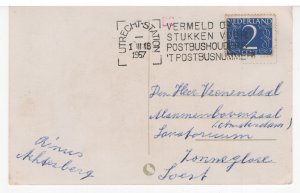 UTRECHT-STATION
1 III 18
1957
VERMELD O
STUKKEN V
POSTBUSHOUDE
'T POSTBUSNUMME
NEDERLAND
2
Den Heer Veenendaal
(Amsterdam)
Sanatorium
Zonnegloren
Soest
Rinus
Achterberg